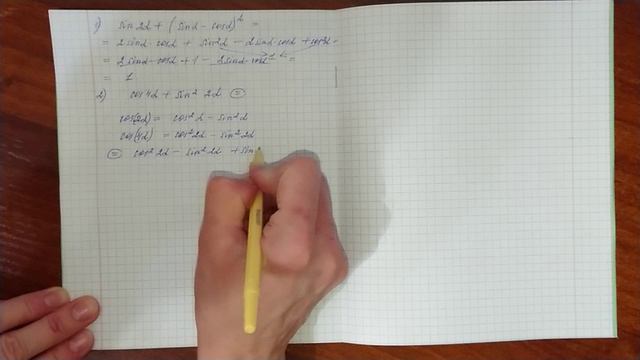 1) sin 2α + (sinα - cosα)² =
= 2 sinα · cosα + sin²α - 2 sinα · cosα + cos²α =
= 2 sinα · cosα + 1 - 2 sinα · cosα =
= 1
2) cos 4α + sin² 2α =
cos(2α) = cos²α - sin²α
cos(4α) = cos² 2α - sin² 2α
= cos² 2α - sin² 2α + sin²